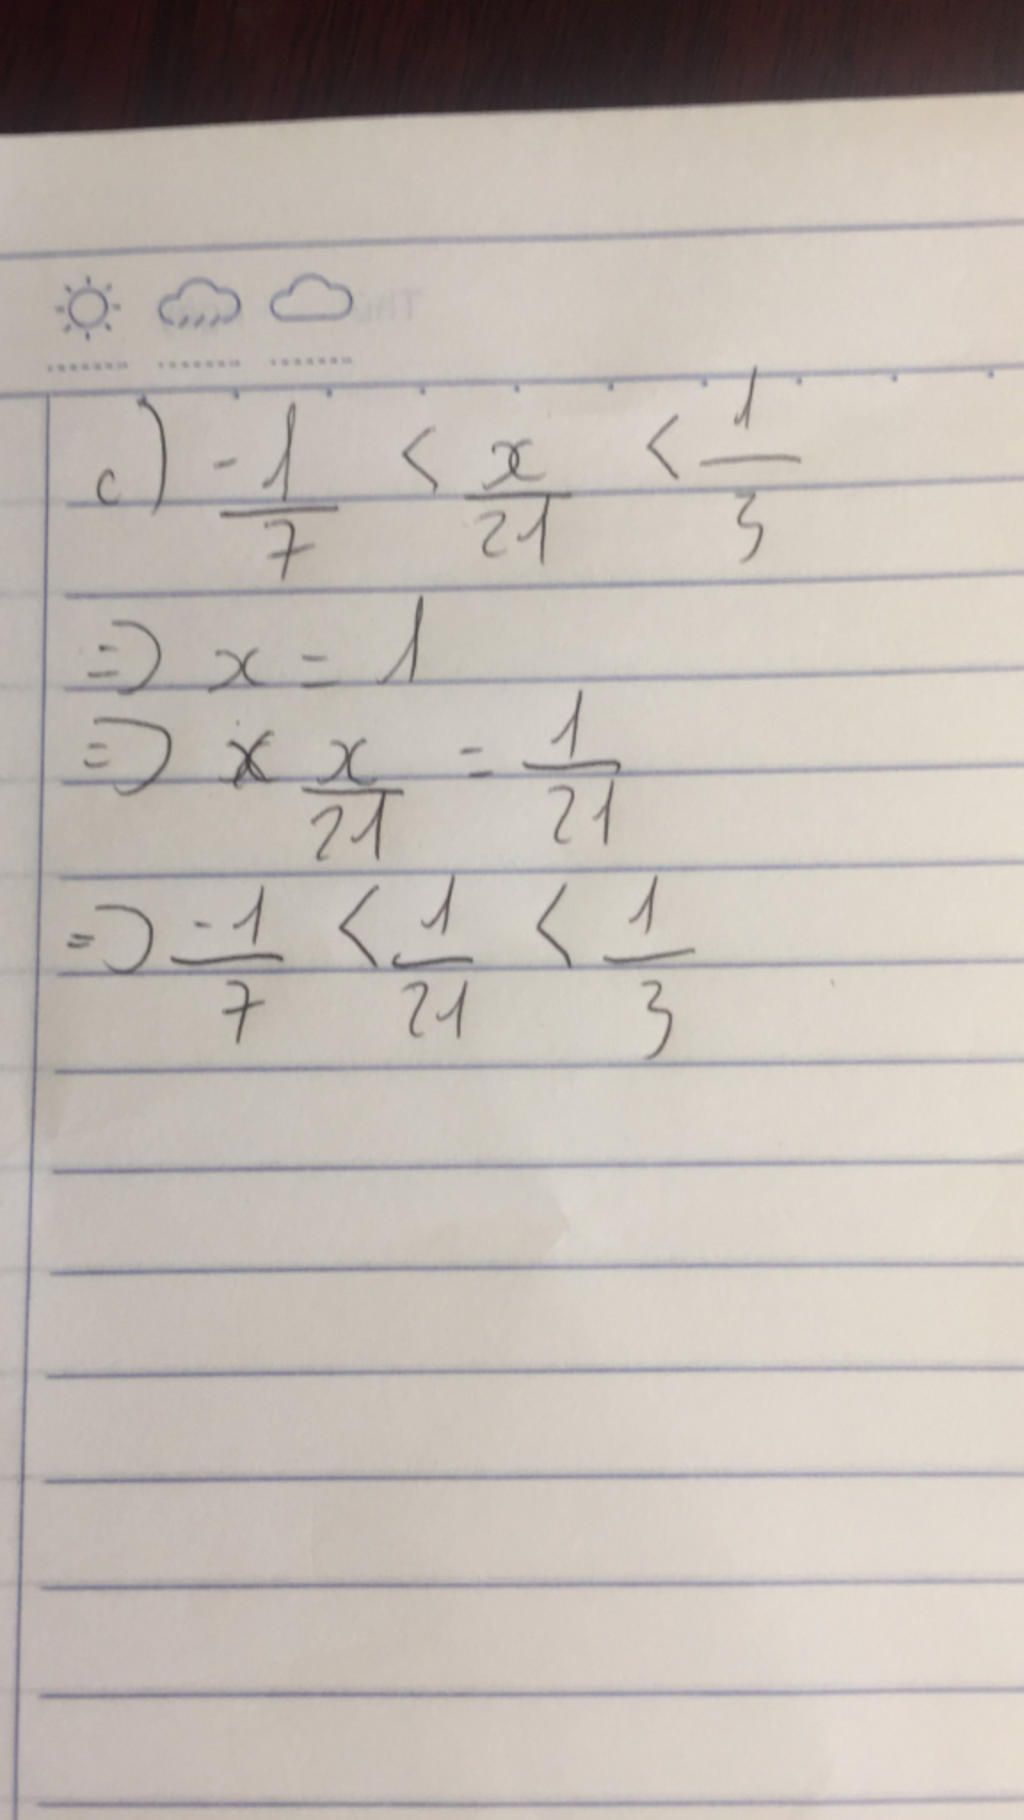 c) -1/7 < x/21 < 1/3
=> x = 1
=> x/21 = 1/21
=> -1/7 < 1/21 < 1/3